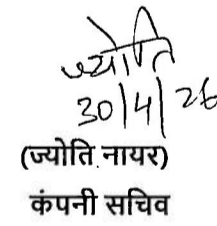 ज्योति
30/4/26
(ज्योति नायर)
कंपनी सचिव